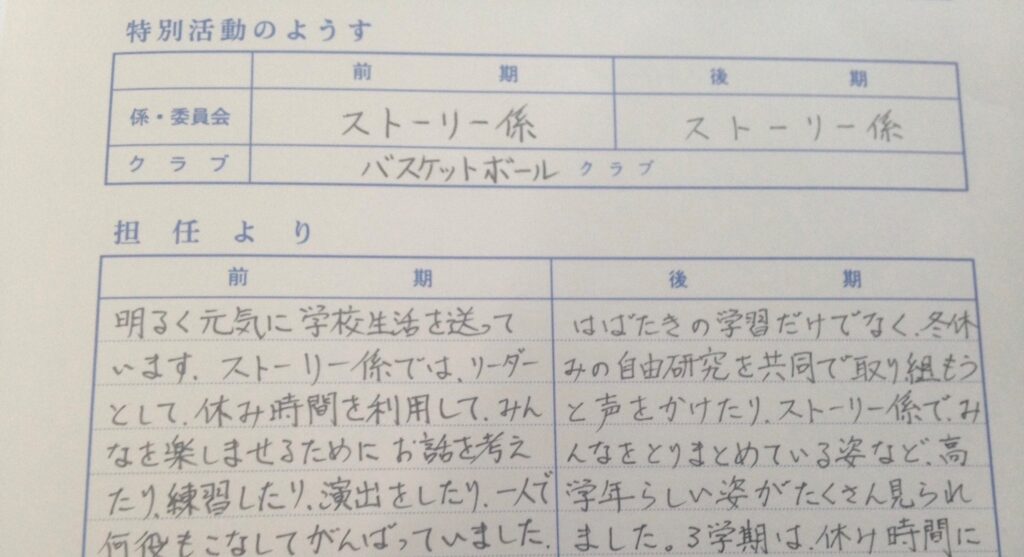 特別活動のようす
前期 後期
係・委員会 ストーリー係 ストーリー係
クラブ バスケットボール クラブ
担任より
前期
明るく元気に学校生活を送って
います。ストーリー係では、リーダー
として、休み時間を利用して、みん
なを楽しませるためにお話を考え
たり、練習したり、演出をしたり、一人で
何役もこなしてがんばっていました。
後期
はばたきの学習だけでなく、冬休
みの自由研究を共同で取り組もう
と声をかけたり、ストーリー係で、み
んなをとりまとめている姿など、高
学年らしい姿がたくさん見られ
ました。3学期は、休み時間に